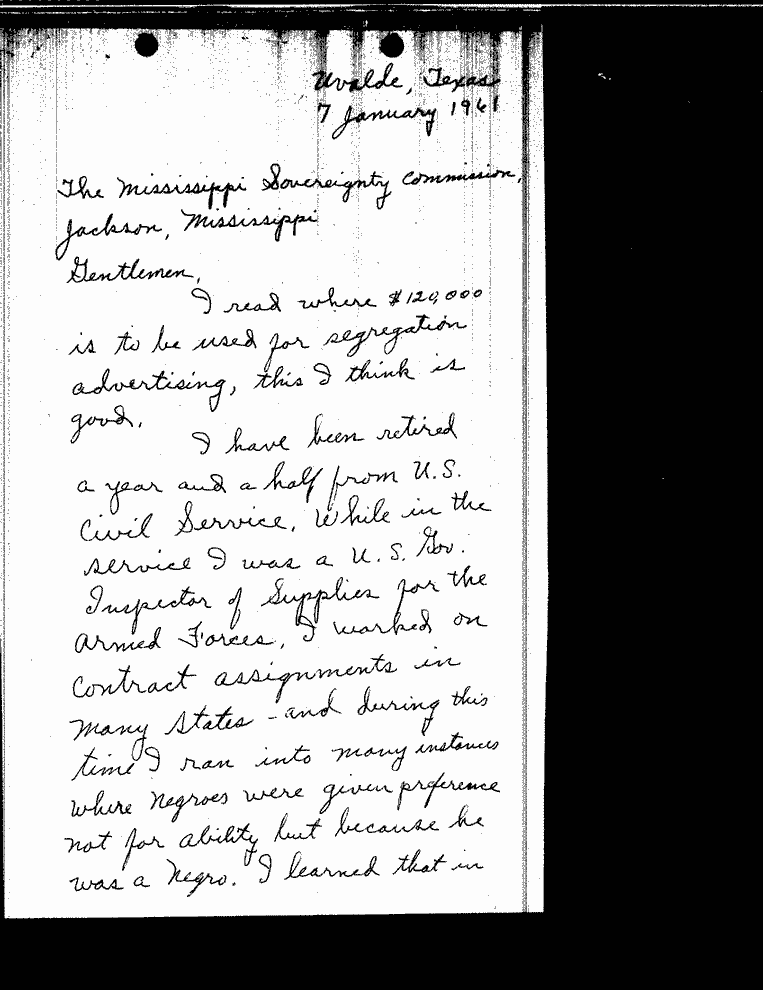 Uvalde, Texas
7 January 1961
The Mississippi Sovereignty Commission,
Jackson, Mississippi
Gentlemen,
I read where $120,000
is to be used for segregation
advertising, this I think is
good.
I have been retired
a year and a half from U.S.
Civil Service. While in the
service I was a U.S. Gov.
Inspector of Supplies for the
Armed Forces. I worked on
contract assignments in
many states - and during this
time I ran into many instances
where negroes were given prference
not for ability but because he
was a negro. I learned that in